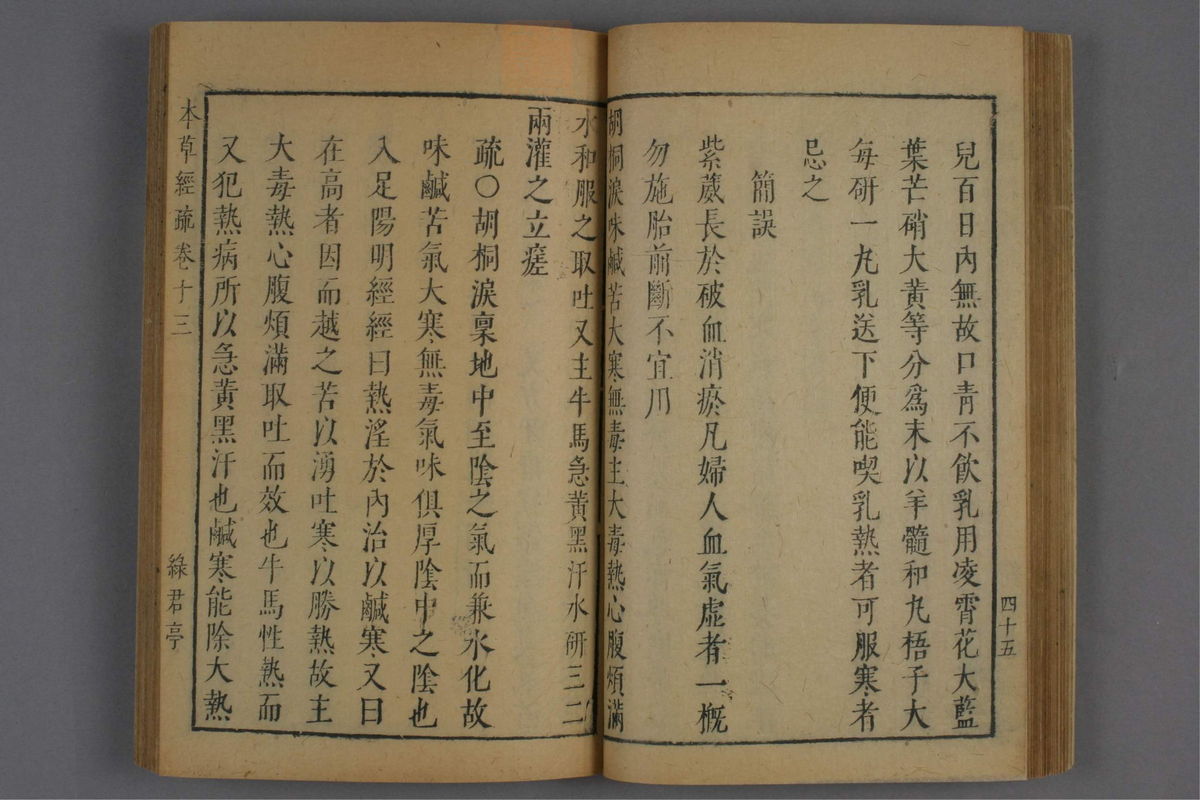 兒百日內無故口青不飲乳用凌霄花大藍
葉芒硝大黃等分爲末以羊髓和丸梧子大
每研一丸乳送下便能喫乳熱者可服寒者
忌之
簡誤
紫葳長於破血消瘀凡婦人血氣虛者一槪
勿施胎前斷不宜用
胡桐淚味鹹苦大寒無毒主大毒熱心腹煩滿
水和服之取吐又主牛馬急黃黑汗水研三二
兩灌之立瘥
疏○胡桐淚稟地中至陰之氣而兼水化故
味鹹苦氣大寒無毒氣味俱厚陰中之陰也
入足陽明經經曰熱淫於內治以鹹寒又曰
在高者因而越之苦以湧吐寒以勝熱故主
大毒熱心腹煩滿取吐而效也牛馬性熱而
又犯熱病所以急黃黑汗也鹹寒能除大熱
四十五
本草經疏卷十三
綠君亭